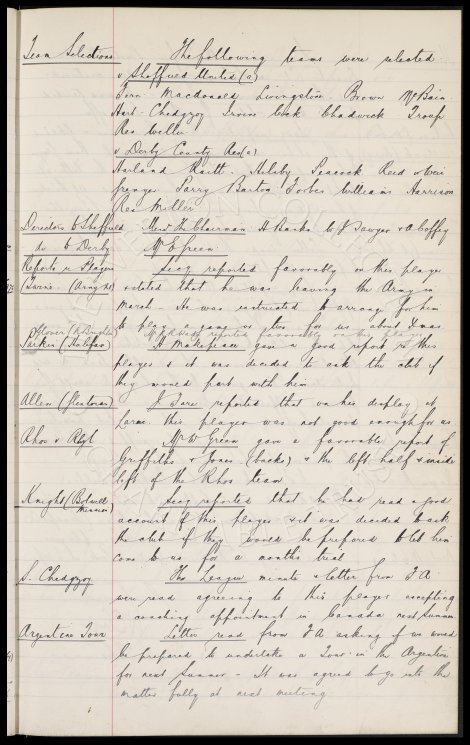 Team Selections The following teams were selected.
v Sheffield United (a)
Fern Macdonald Livingstone Brown McBain
Hart Chedgzoy Irvine Cock Chadwick Troup
Res Weller
v Derby County Res (a)
Harland Raitt Ashby Peacock Reid & Weir
Parry Barton Forbes Williams Harrison
Res Miller
Directors to Sheffield The Chairman H Banks W J Sawyer & A Coffey
do to Derby W C Green
Reports re Players Secy reported favorably on this player
Irvine (Army) & stated that he was leaving the Army in
March. He was instructed to arrange for him
to play a game or two for us about Xmas
Glover
Parker (Halifax) H Makepeace gave a good report re this
player & it was decided to ask the club if
they would part with him
Allen reported that on his display at
this player was not good enough for us
Rhos v Mr W Green gave a favorable report of
Griffiths & Jones (backs) & the left half & inside
left of the Rhos team
Knight Secy reported that he had read a good
account of this player & it was decided to ask
the club if they would be prepared to let him
come to us for a months trial
S. Chedgzoy The League minute & letter from F A
were read agreeing to this player accepting
a coaching appointment in Canada next summer
Argentine Tour Letter read from F A asking if we would
be prepared to undertake a Tour in the Argentine
for next Summer - It was agreed to go into the
matter fully at next meeting